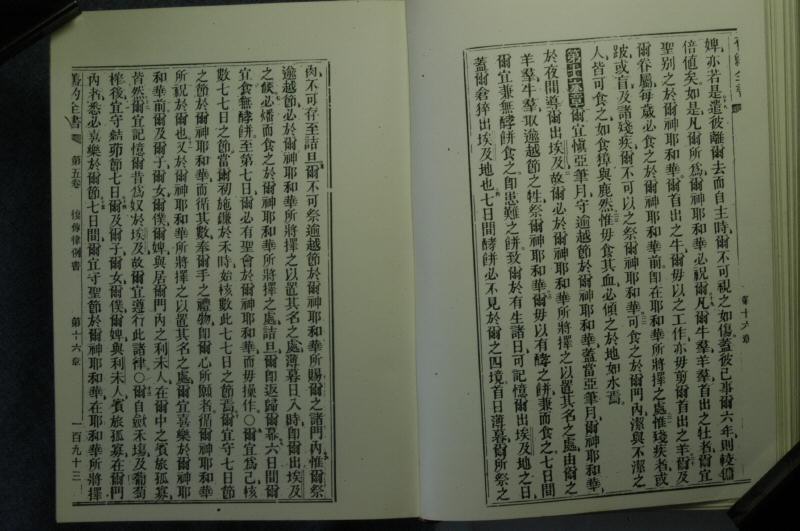 舊約全書
第十六章
婢、亦若是、遣彼離爾去而自主時、爾不可視之如傷、蓋彼已事爾六年、則較傭
倍値矣、如是、凡爾所爲、爾神耶和華必祝爾、凡爾牛羣羊羣首出之牡者、爾宜
聖別之於爾神耶和華、爾首出之牛、爾毋以之工作、亦毋剪爾首出之羊、爾及
爾眷屬、每歲必食之於爾神耶和華前、卽在耶和華所將擇之處、惟殘疾者、或
跛或盲、及諸殘疾、爾不可以之祭爾神耶和華、可食之於爾門內、潔與不潔之
人皆可食之、如食獐與鹿然、惟毋食其血、必傾之於地如水焉、
第十六章爾宜愼亞筆月、守逾越節於爾神耶和華、蓋當亞筆月、爾神耶和華
於夜間導爾出埃及、故爾必於爾神耶和華所將擇之以置其名之處、由爾之
羊羣牛羣、取逾越節之牲、祭爾神耶和華、爾毋以有酵之餅兼而食之、七日間
爾宜兼無酵餅食之、卽患難之餅、致爾於有生諸日、可記憶爾出埃及之日、
蓋爾倉猝出埃及地也、七日間酵餅必不見於爾之四境、首日薄暮爾所祭之
肉、不可存至詰旦、爾不可祭逾越節於爾神耶和華所賜爾之諸門內、惟爾祭
逾越節、必於爾神耶和華所將擇之以置其名之處、薄暮日入時、卽爾出埃及
之候、必燔而食之、於爾神耶和華所將擇之處、詰旦、爾卽返歸爾幕、六日間爾
宜食無酵餅、至第七日、爾必有聖會於爾神耶和華、而毋操作、〇爾宜爲己核
數七七日之節、當爾初施鐮於禾時、始核數此七七日之節焉、爾宜守七日節
之節於爾神耶和華、而循其數奉爾手之禮物、卽爾心所願者、循爾神耶和華
所祝於爾也、又於爾神耶和華所將擇之以置其名之處、爾宜喜樂於爾神耶
和華前、爾及爾子爾女爾僕爾婢、與居爾門內之利未人、在爾中之賓旅孤寡、
皆然、爾宜記憶爾昔爲奴於埃及、故爾宜遵行此諸律、〇爾自獻禾塲及葡萄
榨後、宜守結茆節七日、爾及爾子爾女爾僕爾婢、與利未人賓旅孤寡、在爾門
內者、悉必喜樂於爾節、七日間、爾宜守聖節於爾神耶和華、在耶和華所將擇
舊約全書
第五卷
復傳律例書
第十六章
一百九十三